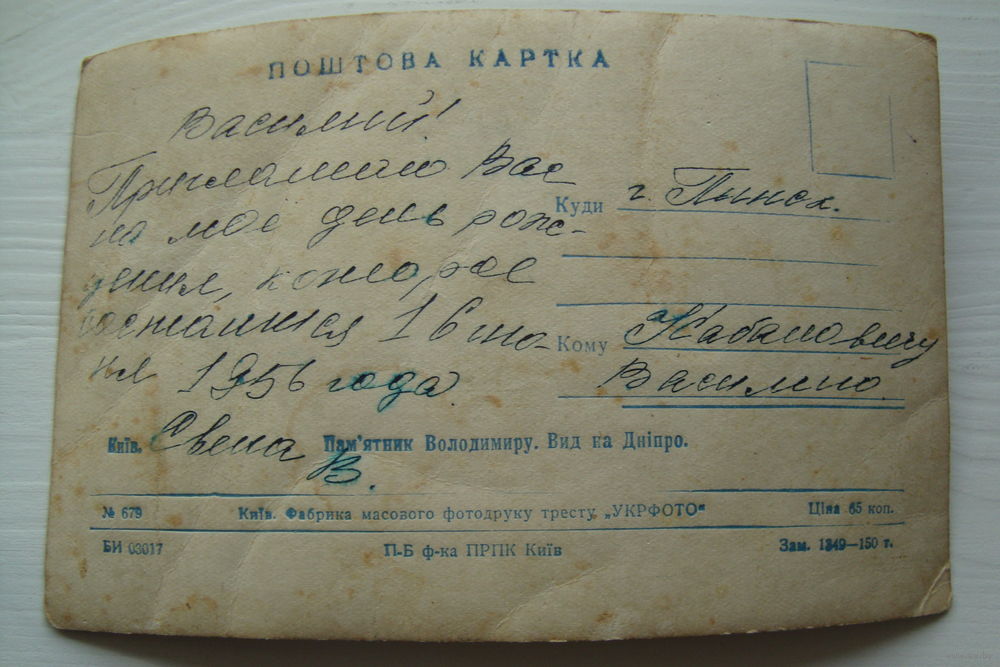 ПОШТОВА КАРТКА
Василий!
Приглашаю Вас
на мое день рож-
дения, которое
состаится 16 ию-
ня 1956 года.
Света В.
Куди г. Пинск.
Кому Кабановичу
Василию.
Київ. Пам'ятник Володимиру. Вид на Дніпро.
№ 679 Київ. Фабрика масового фотодруку тресту „УКРФОТО" Ціна 65 коп.
БИ 03017 П-Б ф-ка ПРПК Київ Зам. 1349—150 т.